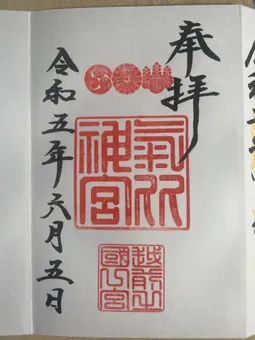 奉拝
氣比
神宮
越前之
國一宮
令和五年六月五日